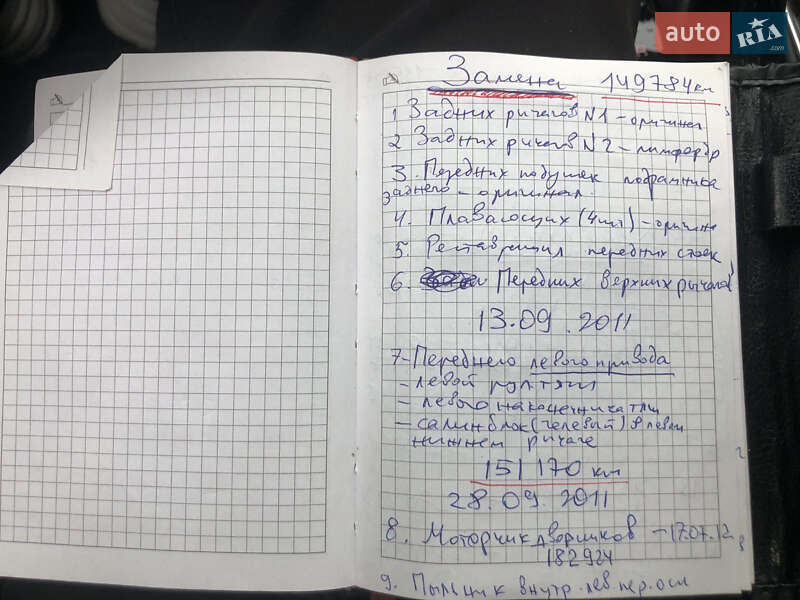 auto RIA .com
Замена 149784 км
1 Задних рычагов N1 - оригинал
2 Задних рычагов N2 - лимфордр
3. Передних подушек подрамника
заднего - оригинал.
4. Плавающих (4шт) - оригин
5. Реставрация передних стоек
6. Передних верхних рычагов
13.09.2011
7 - Переднего левого привода
- левой рул тяги
- левого наконечника тяги
- салинблок (гелевый) в левом
нижнем рычаге
151 170 км
28.09.2011
8. Моторчик дворников - 17.07.12
182924
9. Пыльник внутр. лев. пер. оси